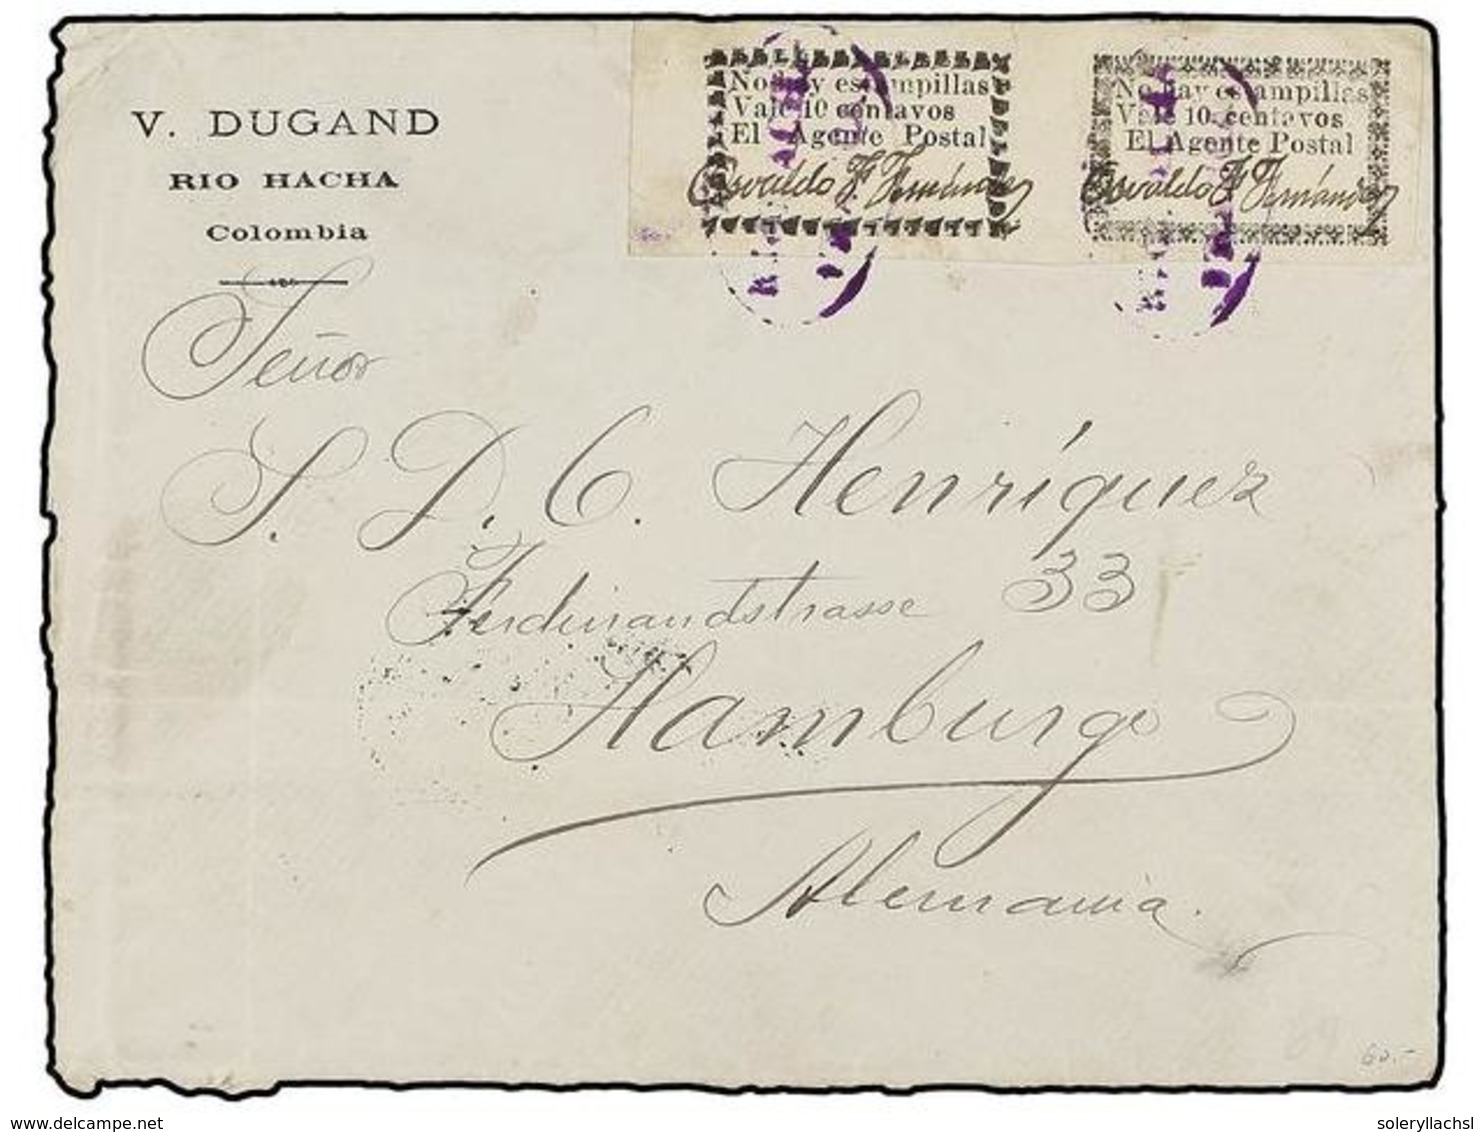 V. DUGAND
RIO HACHA
Colombia
No hay estampillas
Vale 10 centavos
El Agente Postal
Osvaldo F Fernández
No hay estampillas
Vale 10 centavos
El Agente Postal
Osvaldo F Fernández
Señor
S. D. C. Henríquez
Ferdinandstrasse 33
Hamburgo
Alemania.
60.-
soleryllachsl